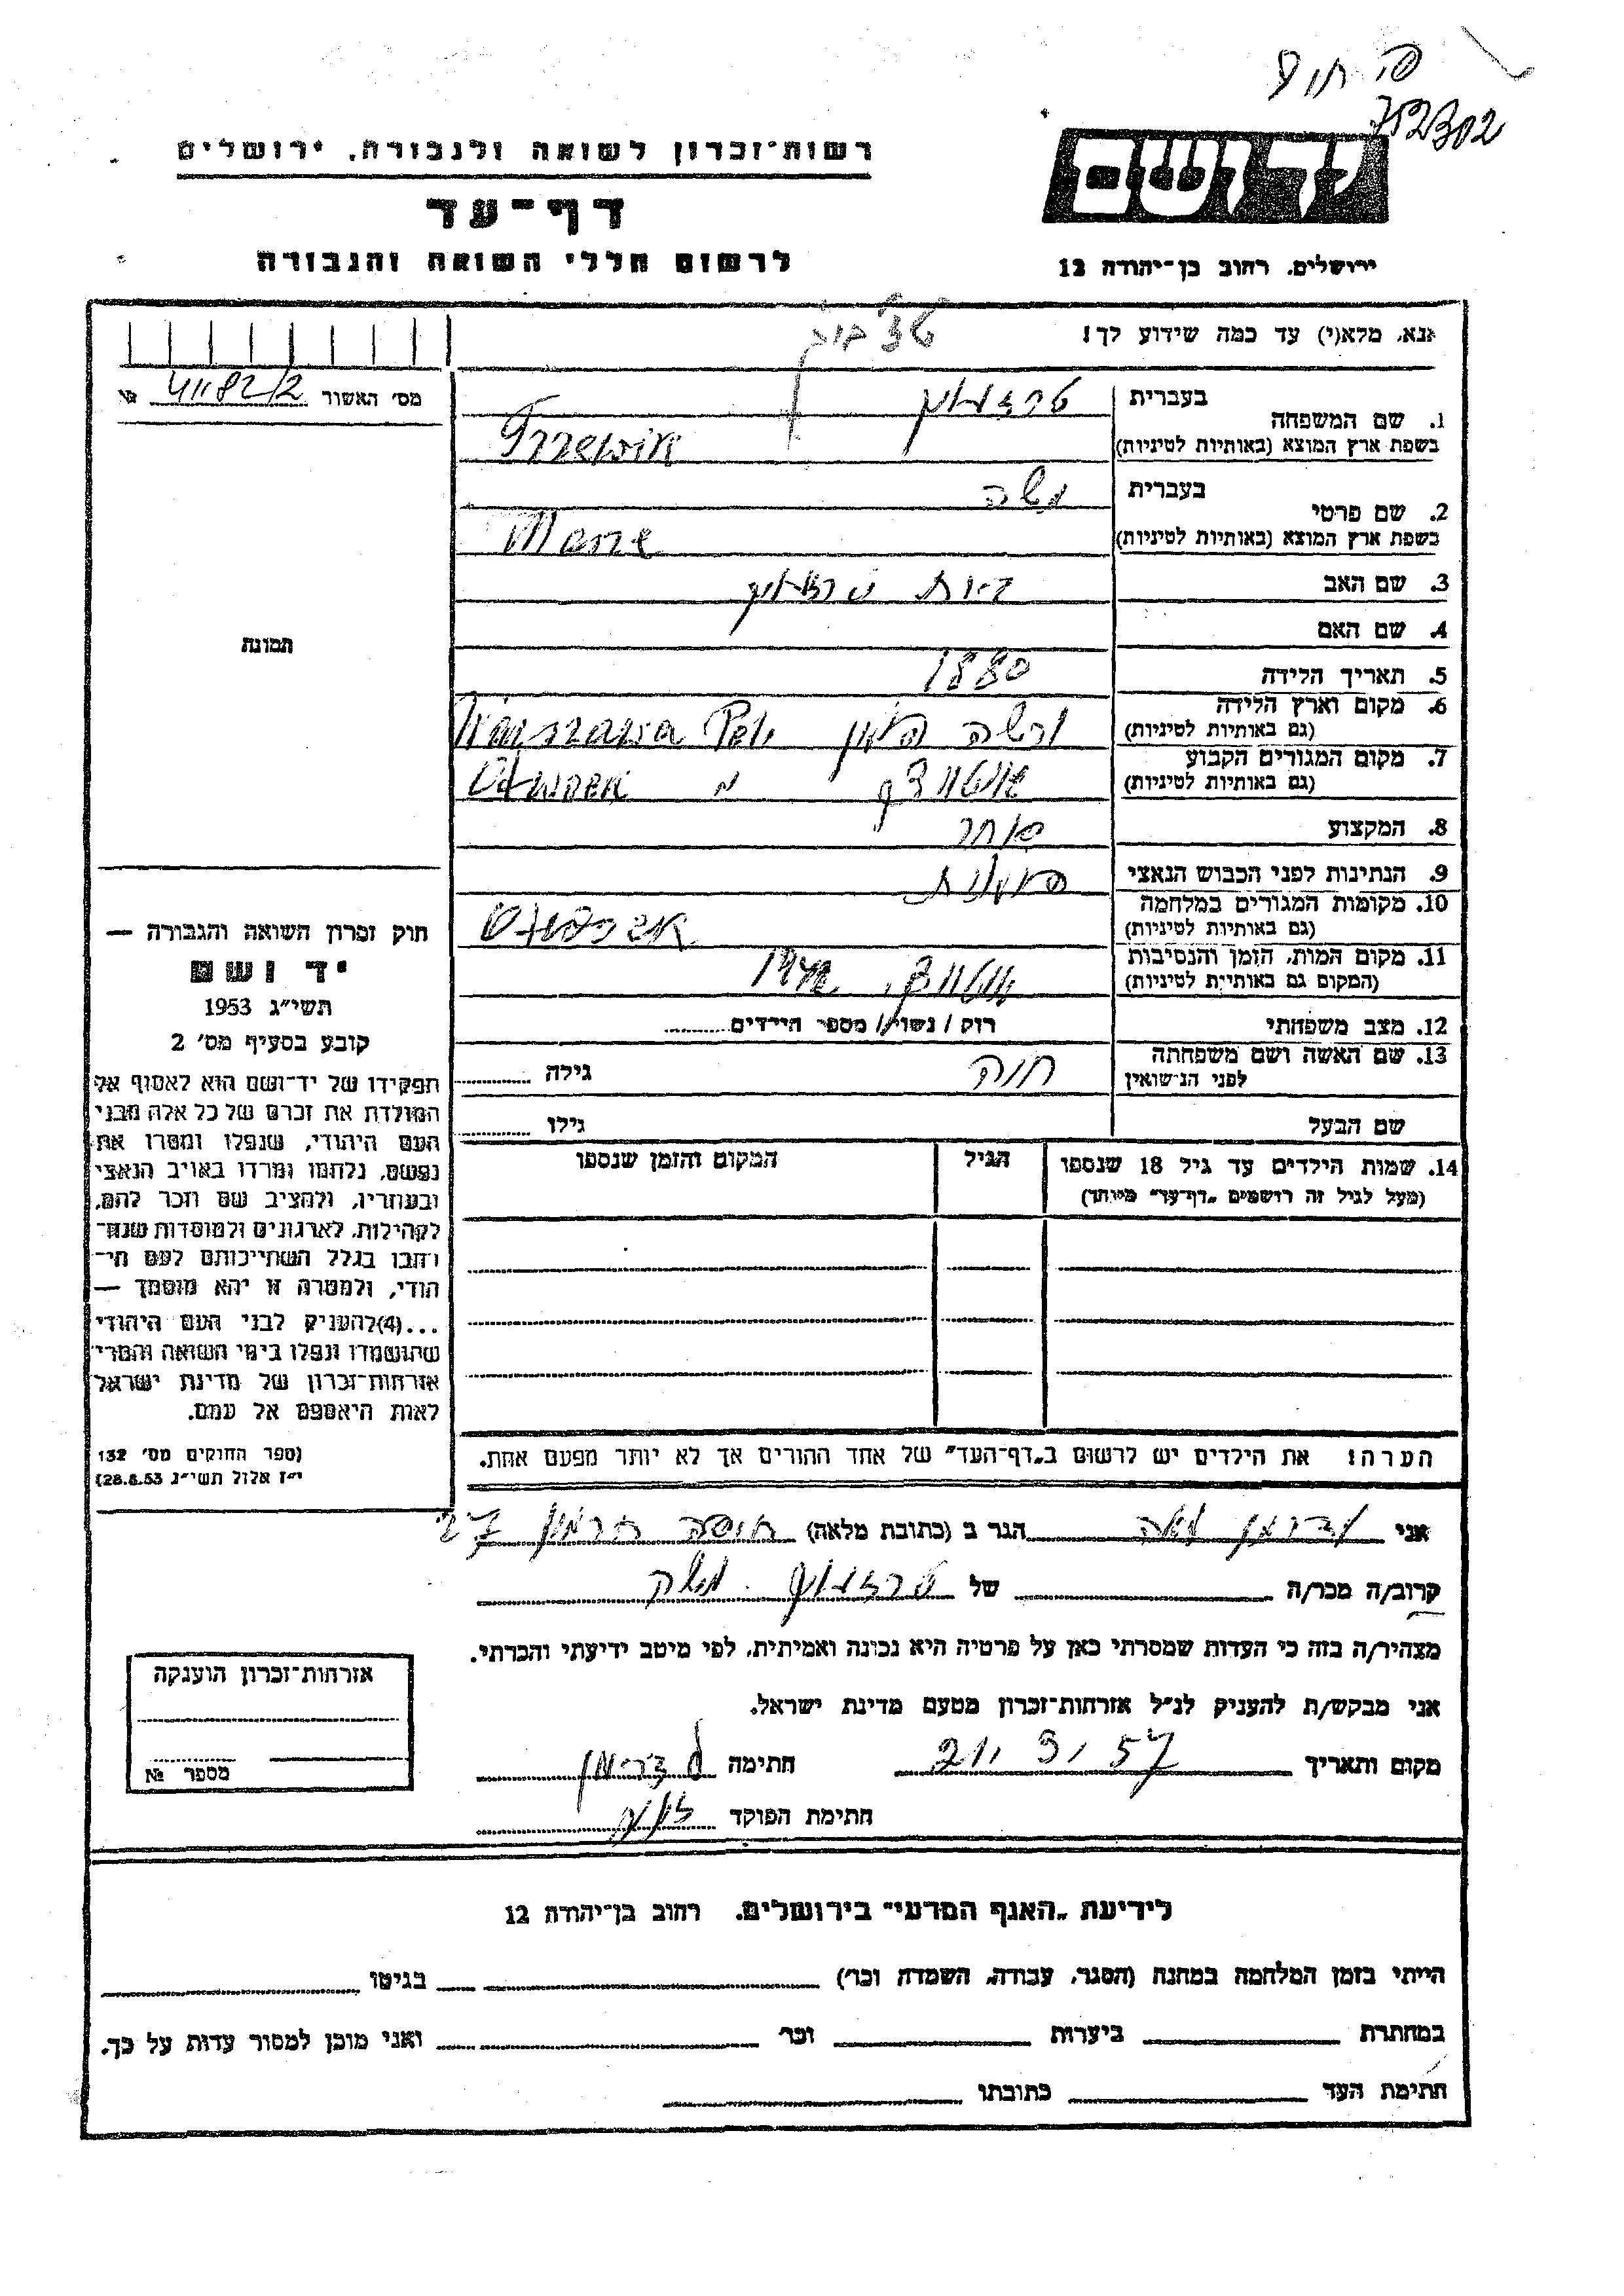 752302
רשות־זכרון לשואה ולגבורה, ירושלים
ידושם
דף־עד
לרשום חללי השואה והגבורה
ירושלים, רחוב בן־יהודה 12
אנא, מלא(י) עד כמה שידוע לך!
מס׳ האשור 41182/2 №
1. שם המשפחה
בעברית
בשפת ארץ המוצא (באותיות לטיניות)
2. שם פרטי
בעברית משה
בשפת ארץ המוצא (באותיות לטיניות)
3. שם האב
4. שם האם
5. תאריך הלידה 1880
6. מקום וארץ הלידה
(גם באותיות לטיניות) ורשה פולין Warszawa
7. מקום המגורים הקבוע
(גם באותיות לטיניות) אוטווצק Otwock
8. המקצוע סוחר
9. הנתינות לפני הכבוש הנאצי פולנית
10. מקומות המגורים במלחמה
(גם באותיות לטיניות)
11. מקום המות, הזמן והנסיבות
(המקום גם באותיות לטיניות) אוטווצק, 1942
12. מצב משפחתי רוק / נשוי / מספר הילדים
13. שם האשה ושם משפחתה
לפני הנישואין חוה גילה
שם הבעל גילו
14. שמות הילדים עד גיל 18 שנספו הגיל המקום והזמן שנספו
(מעל לגיל זה רושמים „דף־עד״ מיוחד)
הערה: את הילדים יש לרשום ב„דף־העד״ של אחד ההורים אך לא יותר מפעם אחת.
תמונה
חוק זכרון השואה והגבורה —
יד ושם
תשי״ג 1953
קובע בסעיף מס׳ 2
תפקידו של יד־ושם הוא לאסוף אל
המולדת את זכרם של כל אלה מבני
העם היהודי, שנפלו ומסרו את
נפשם, נלחמו ומרדו באויב הנאצי
ובעוזריו, ולהציב שם וזכר להם,
לקהילות, לארגונים ולמוסדות שנח־
רבו בגלל השתייכותם לעם הי־
הודי, ולמטרה זו יהא מוסמך —
...(4)להעניק לבני העם היהודי
שהושמדו ונפלו בימי השואה והמרי
אזרחות־זכרון של מדינת ישראל
לאות היאספם אל עמם.
(ספר החוקים מס׳ 132
י״ז אלול תשי״ג 28.8.53)
אני הגר ב (כתובת מלאה) 27
קרוב/ה מכר/ה של משה
מצהיר/ה בזה כי העדות שמסרתי כאן על פרטיה היא נכונה ואמיתית, לפי מיטב ידיעתי והכרתי.
אני מבקש/ת להעניק לנ״ל אזרחות־זכרון מטעם מדינת ישראל.
מקום ותאריך 21,3,57 חתימה
חתימת הפוקד
אזרחות־זכרון הוענקה
מספר №
לידיעת „האגף המדעי״ בירושלים, רחוב בן־יהודה 12
הייתי בזמן המלחמה במחנה (הסגר, עבודה, השמדה וכו׳) בגיטו
במחתרת ביערות וכו׳ ואני מוכן למסור עדות על כך.
חתימת העד כתובתו